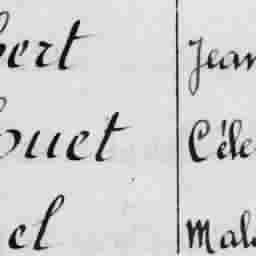 bert Jean
ouet Céle
el Mal